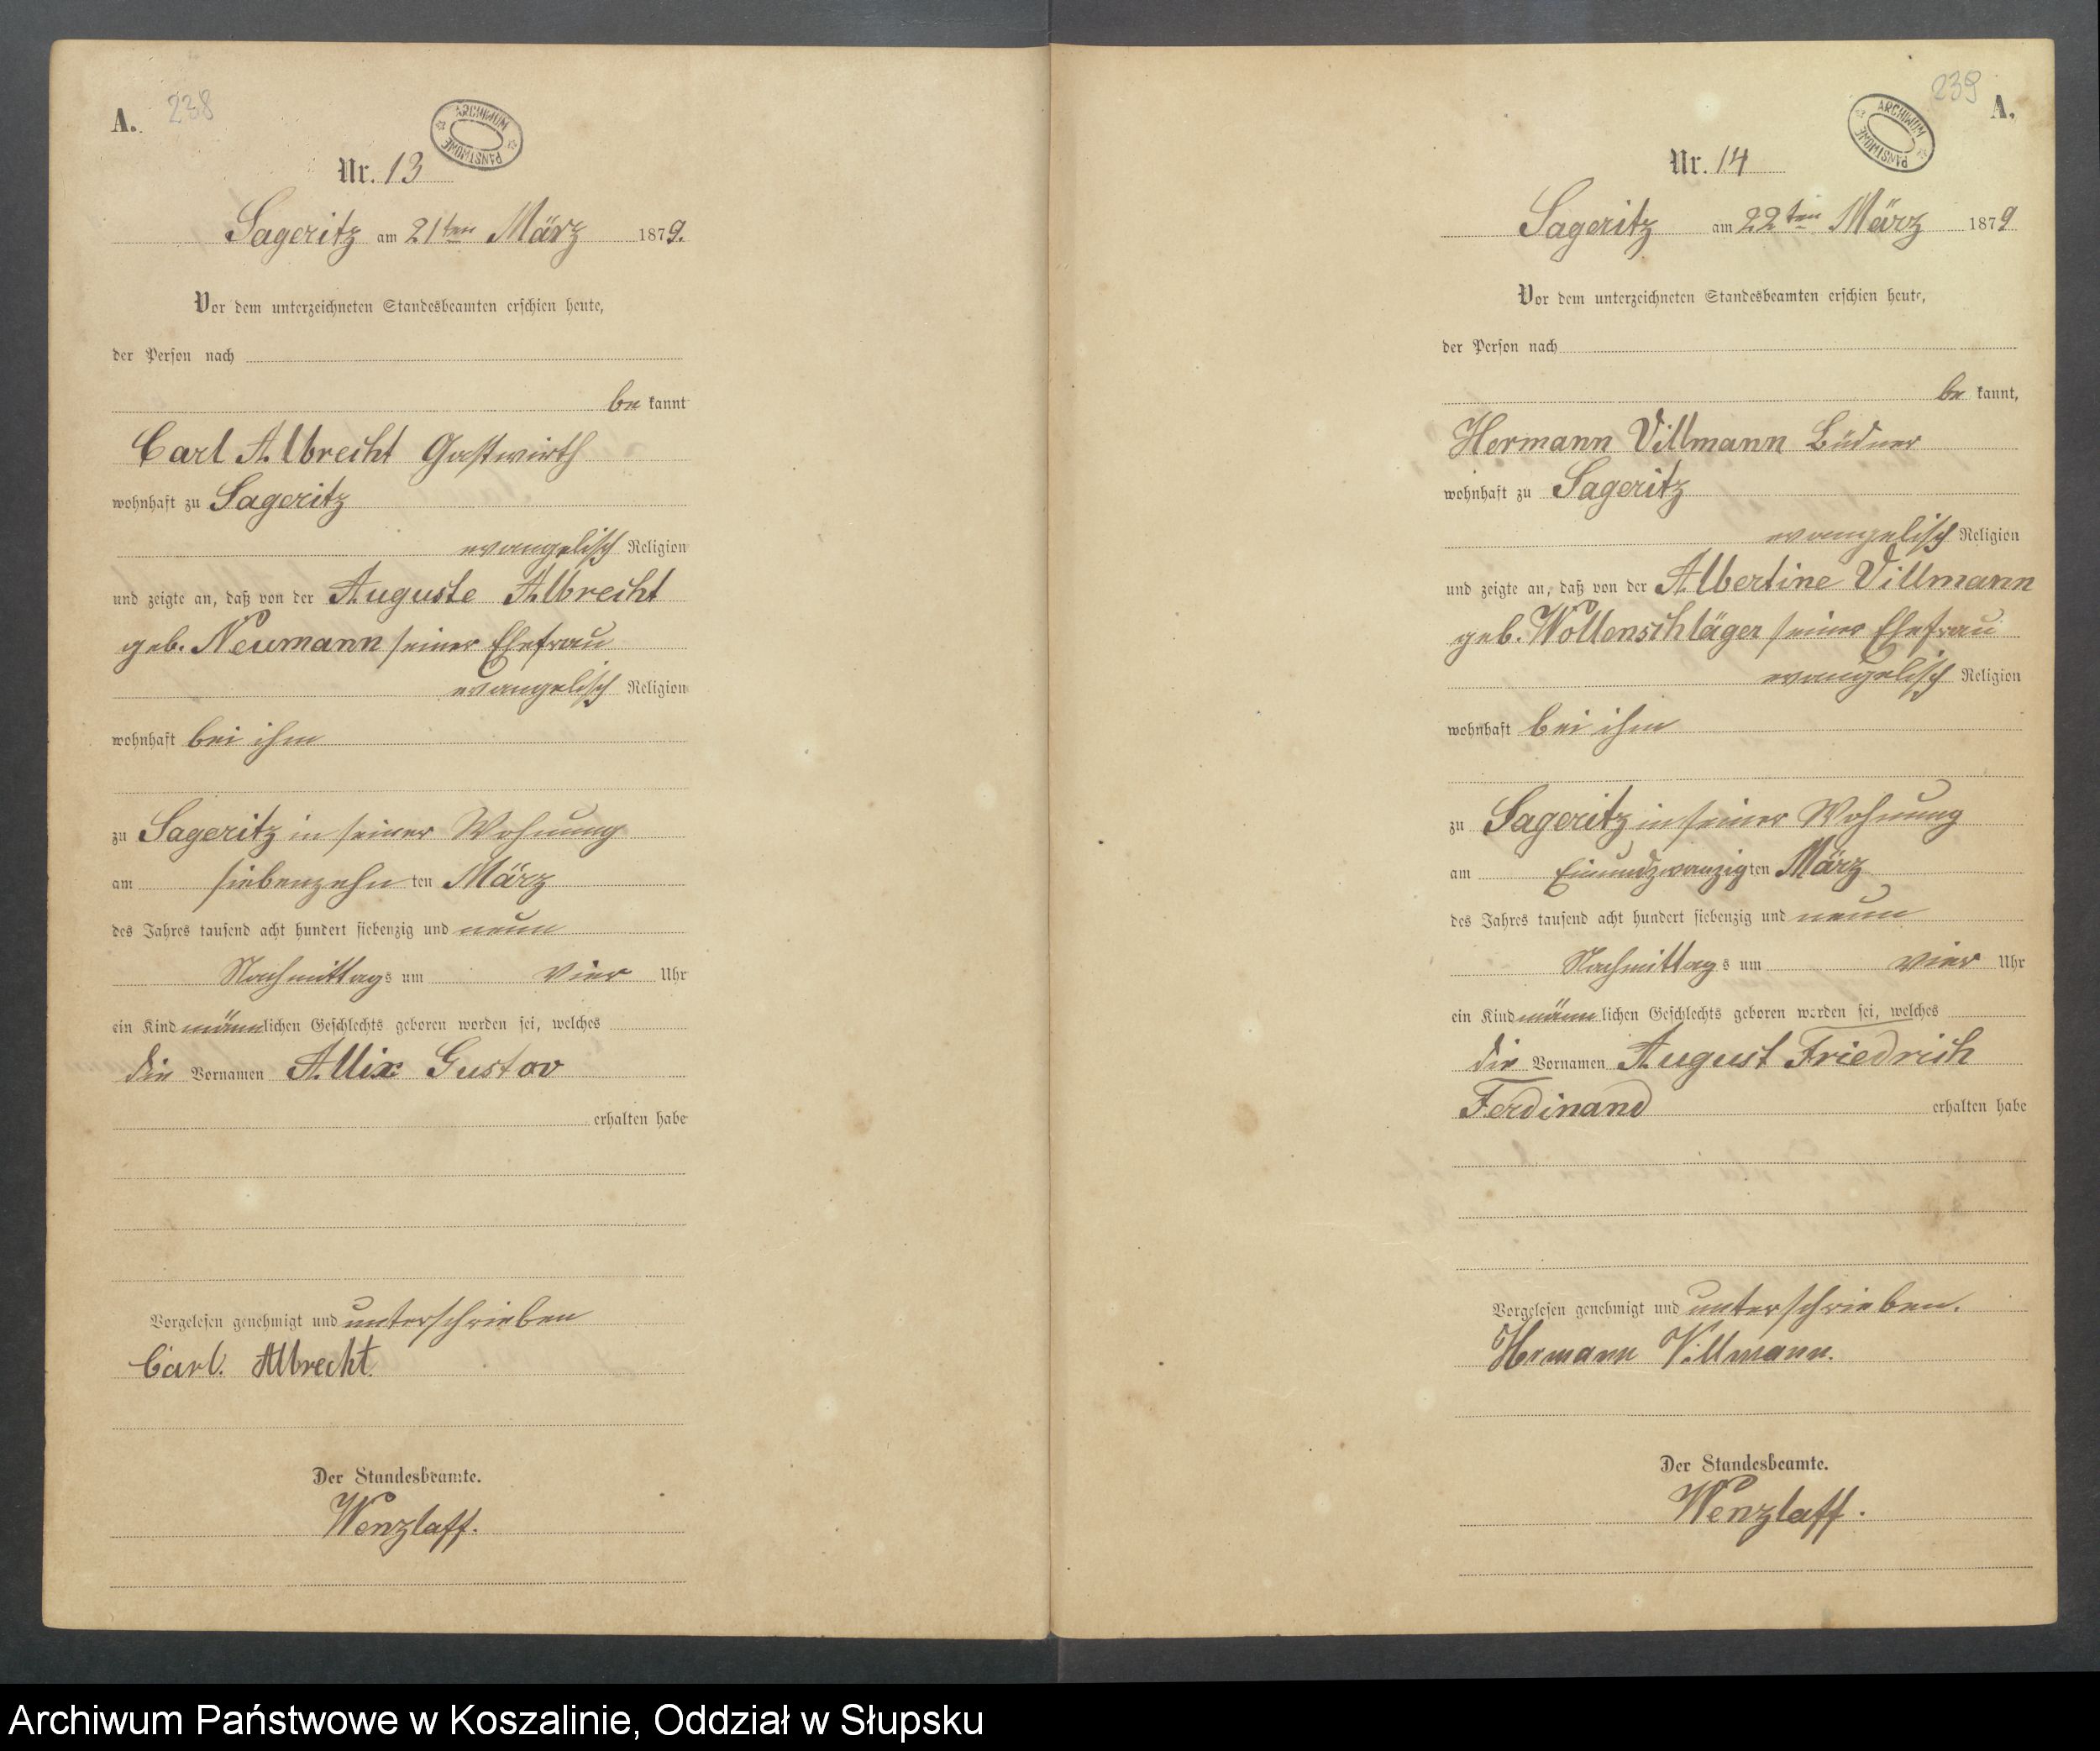 A. 238
ARCHIWUM PAŃSTWOWE
Nr. 13
Sageritz am 21ten März 1879.
Vor dem unterzeichneten Standesbeamten erschien heute,
der Person nach
be kannt
Carl Albrecht Gastwirth
wohnhaft zu Sageritz
evangelisch Religion
und zeigte an, daß von der Auguste Albrecht
geb. Neumann seiner Ehefrau
evangelisch Religion
wohnhaft bei ihm
zu Sageritz in seiner Wohnung
am siebenzehn ten März
des Jahres tausend acht hundert siebenzig und neun
Nachmittags um vier Uhr
ein Kind männlichen Geschlechts geboren worden sei, welches
die Vornamen Allix Gustav
erhalten habe
Vorgelesen genehmigt und unterschrieben
Carl. Albrecht.
Der Standesbeamte.
Wenzlaff.
239 A.
ARCHIWUM PAŃSTWOWE
Nr. 14
Sageritz am 22ten März 1879
Vor dem unterzeichneten Standesbeamten erschien heute,
der Person nach
be kannt,
Hermann Villmann Büdner
wohnhaft zu Sageritz
evangelisch Religion
und zeigte an, daß von der Albertine Villmann
geb. Wollenschläger seiner Ehefrau
evangelisch Religion
wohnhaft bei ihm
zu Sageritz in seiner Wohnung
am Einundzwanzigten März
des Jahres tausend acht hundert siebenzig und neun
Nachmittags um vier Uhr
ein Kind männlichen Geschlechts geboren worden sei, welches
die Vornamen August Friedrich
Ferdinand erhalten habe
Vorgelesen genehmigt und unterschrieben.
Hermann Villmann.
Der Standesbeamte.
Wenzlaff.
Archiwum Państwowe w Koszalinie, Oddział w Słupsku